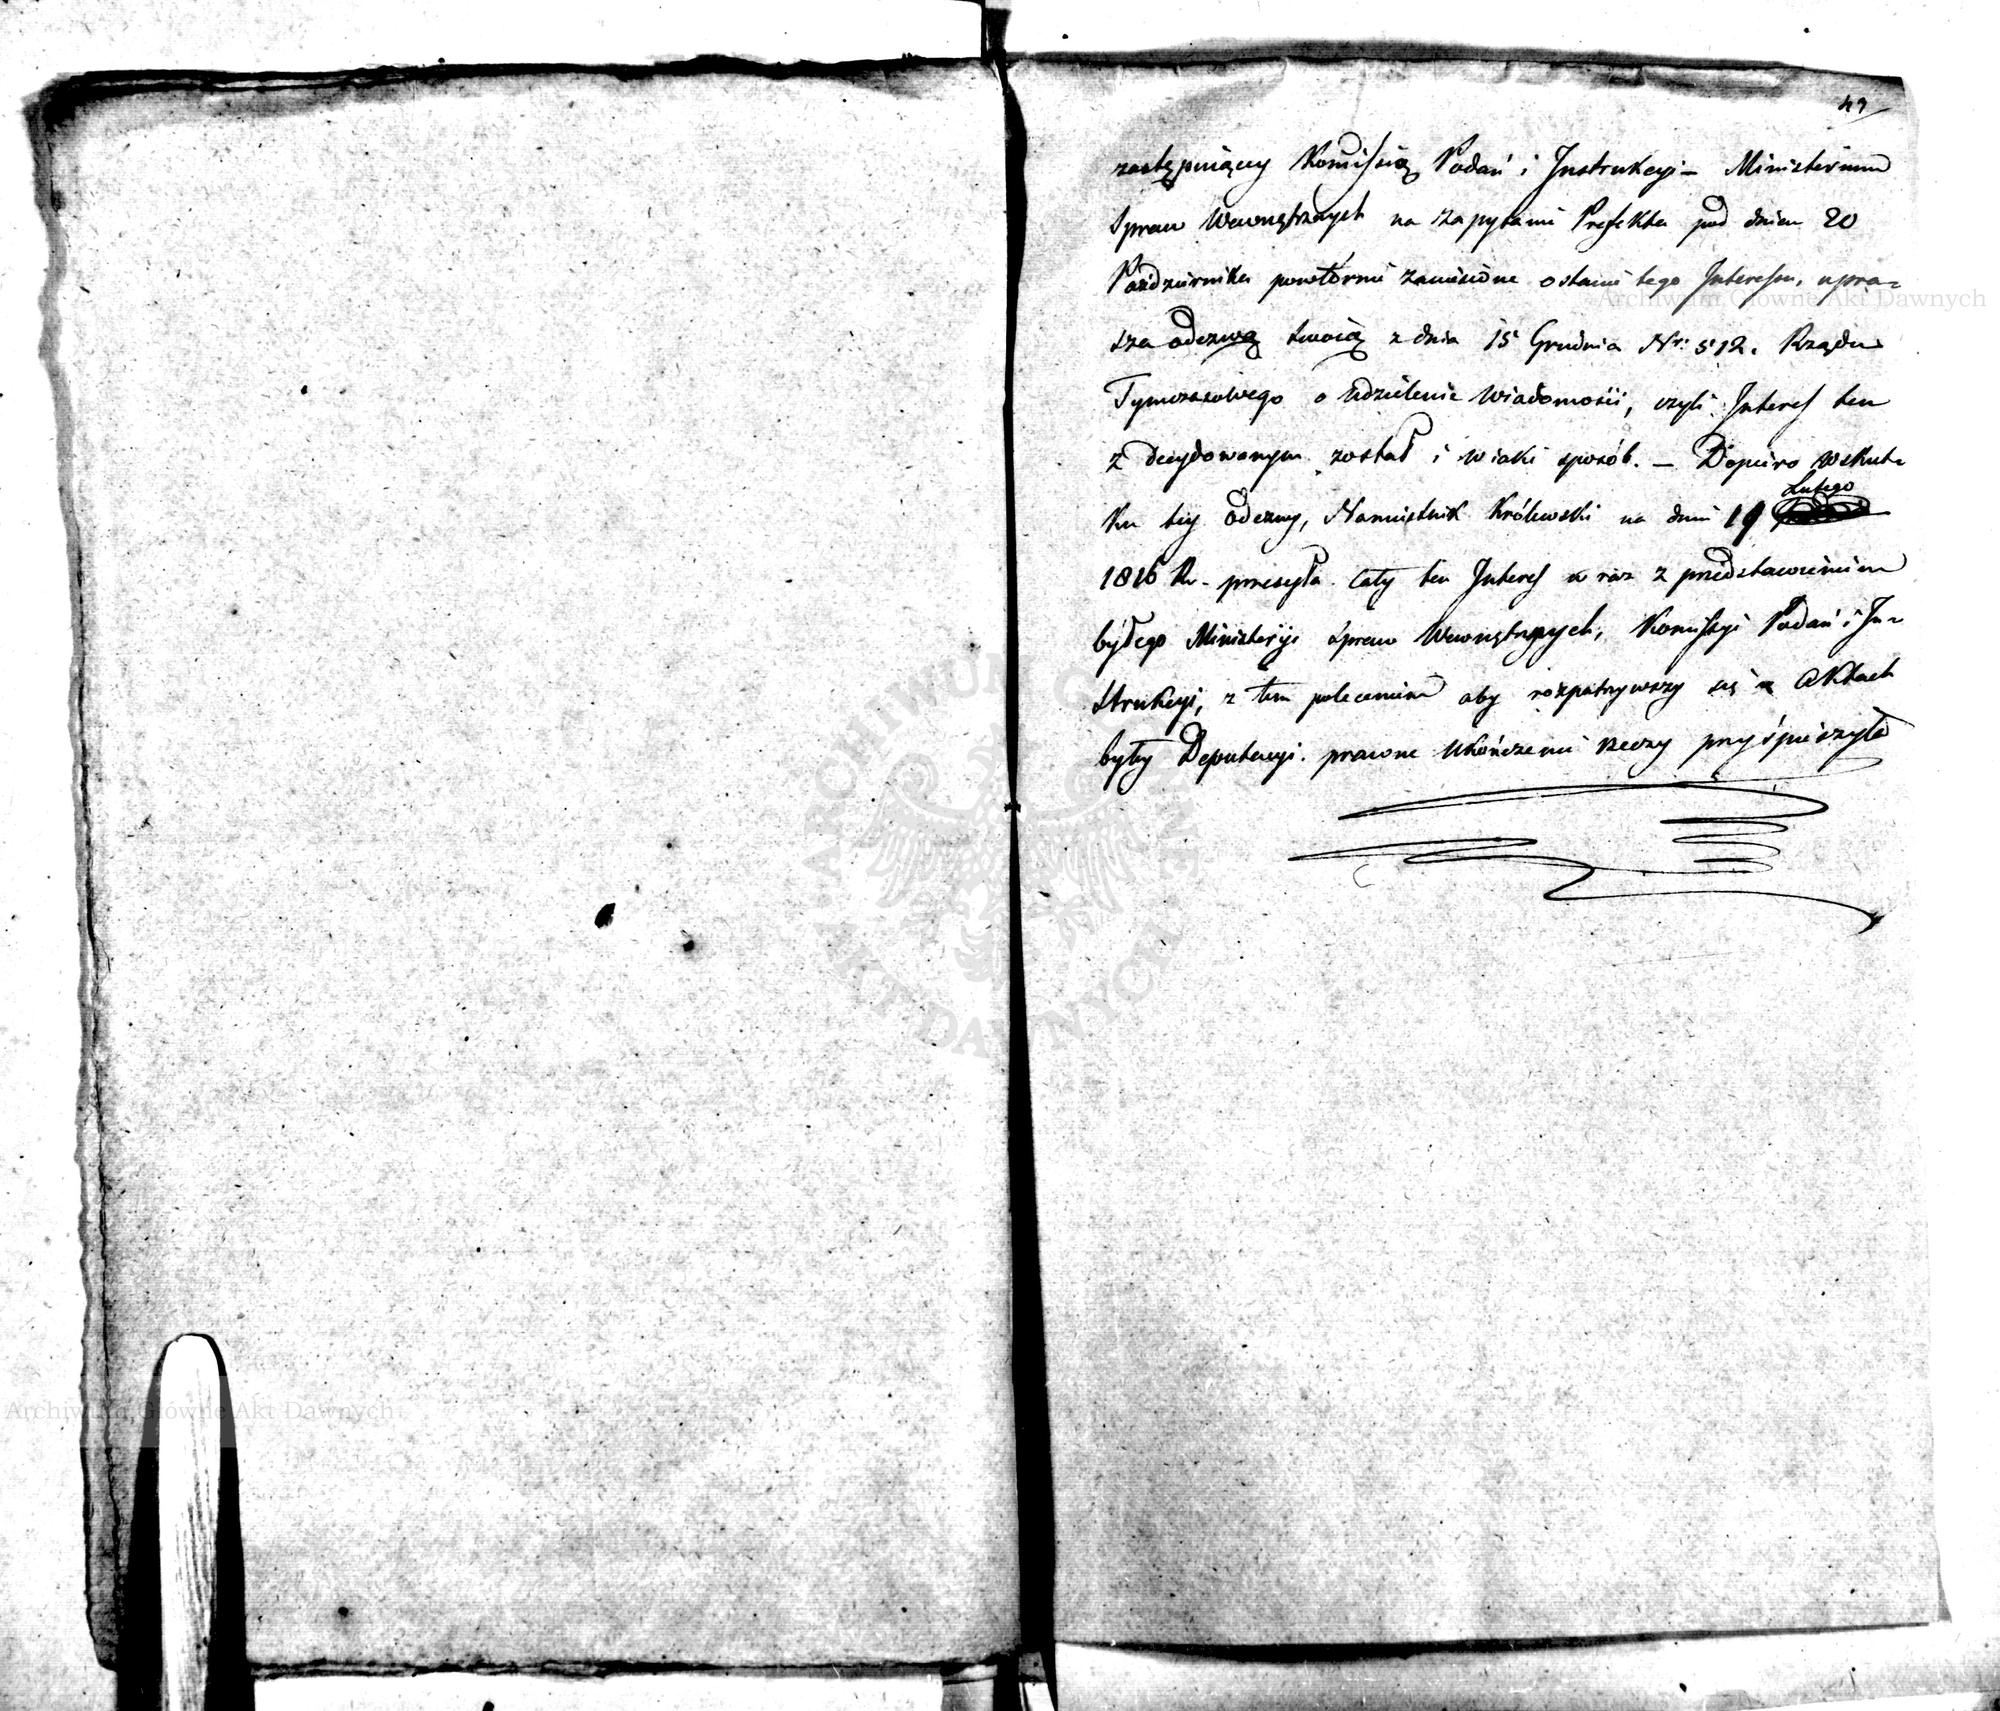 49
zastępuiący Kommissią Podań i Instrukcyi – Ministerium
Spraw Wewnętrznych na zapytanie Prefekta pod dniem 20
Października powtórnie zaniesione o stanie tego Interessu, upra-
sza odezwą swoią z dnia 15 Grudnia Nr. 512. Rządu
Tymczasowego o udzielenie wiadomości, czyli Interes ten
zdecydowanym został i w iaki sposób. – Dopiero wskut-
ku tey odezwy, Namiestnik Królewski na dniu 19 Lutego
1816 R. przesyła cały ten Interes w raz z przedstawieniem
byłego Ministeryi Spraw Wewnętrznych, Komissyi Podań i In-
strukcyi, z tem poleceniem aby rozpatrzywszy się w Aktach
byłey Deputacyi. prawne ukończenie rzeczy przyśpieszyła
Archiwum Główne Akt Dawnych
ARCHIWUM GŁÓWNE AKT DAWNYCH
Archiwum Główne Akt Dawnych